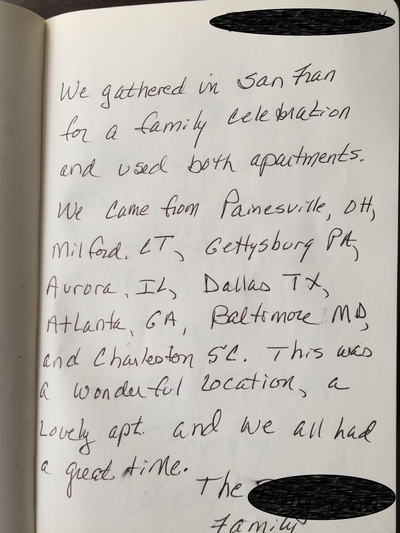 We gathered in San Fran
for a family celebration
and used both apartments.
We came from Painesville, OH,
Milford, CT, Gettysburg PA,
Aurora, IL, Dallas TX,
Atlanta, GA, Baltimore MD,
and Charleston SC. This was
a wonderful location, a
Lovely apt. and we all had
a great time.
The
Family